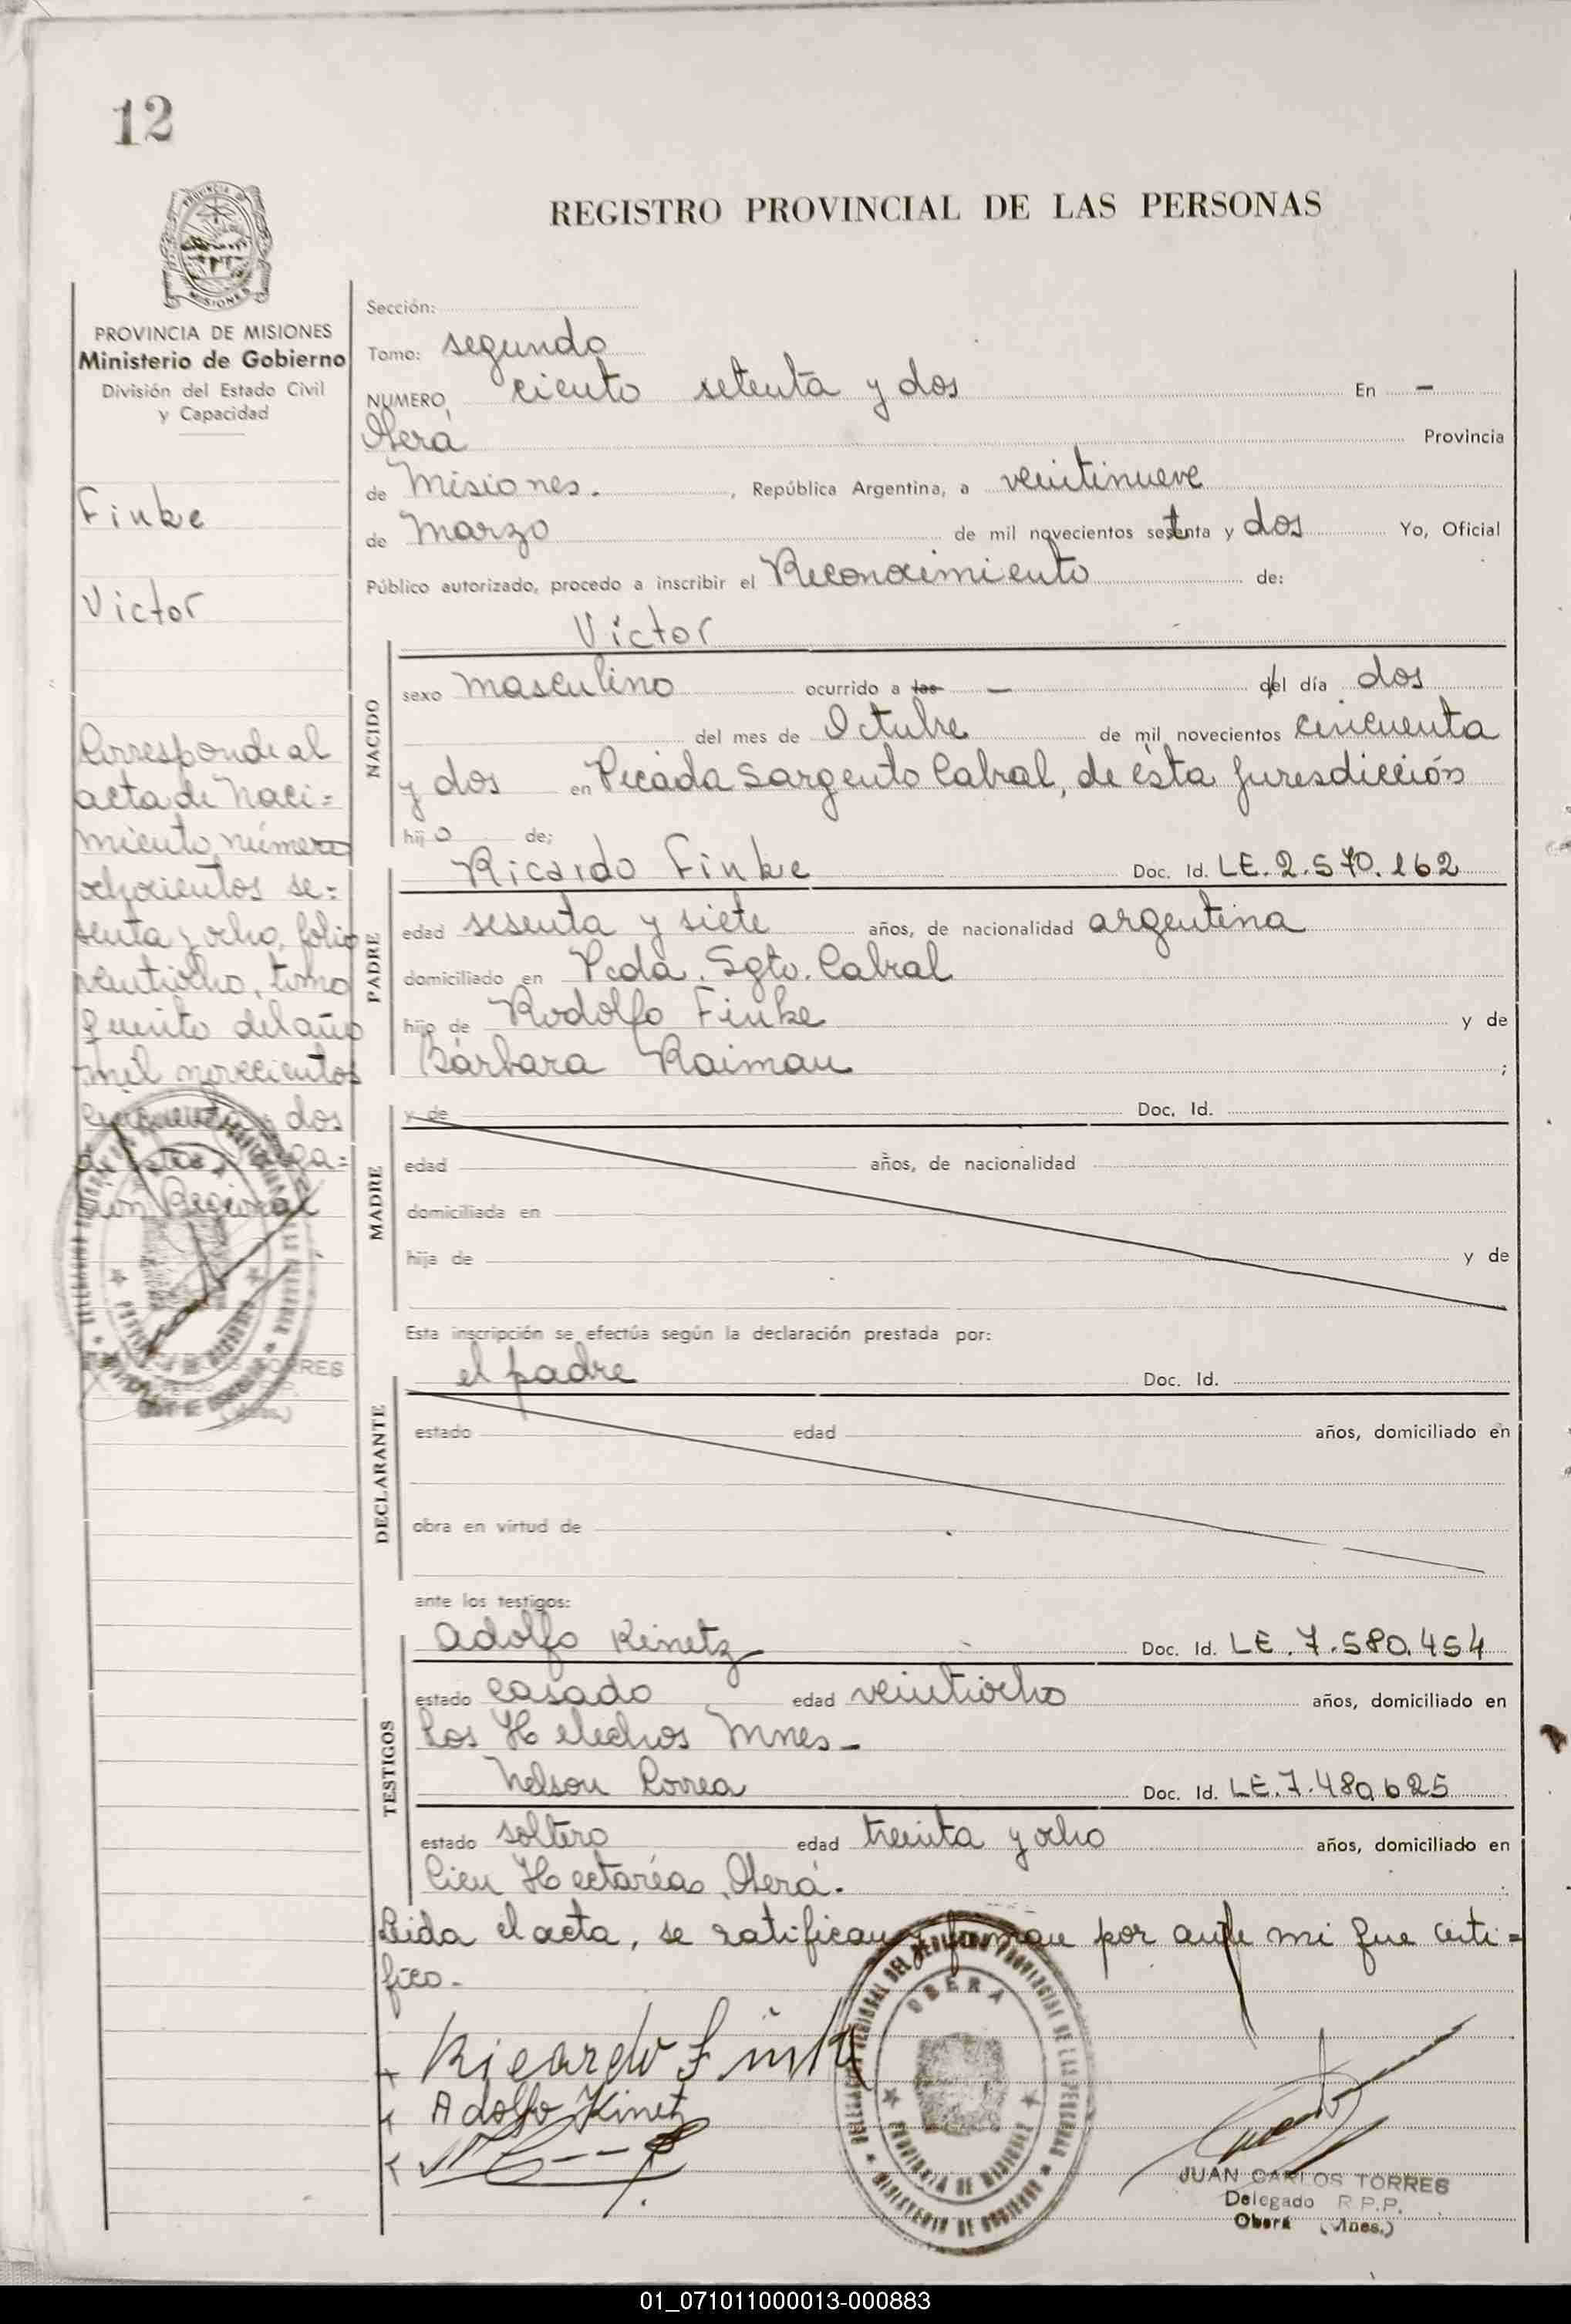 12
PROVINCIA DE MISIONES
REGISTRO PROVINCIAL DE LAS PERSONAS
PROVINCIA DE MISIONES
Ministerio de Gobierno
División del Estado Civil
y Capacidad
Finke
Victor
Corresponde al
acta de Naci=
miento número
ochocientos se=
senta y ocho, folio
veintiocho, tomo
quinto del año
mil novecientos
cincuenta y dos
de
Regional
Sección:
Tomo: segundo
NUMERO, ciento setenta y dos En -
Oberá Provincia
de Misiones. , República Argentina, a veintinueve
de Marzo de mil novecientos setenta y dos Yo, Oficial
Público autorizado, procedo a inscribir el Reconocimiento de:
Victor
NACIDO
sexo masculino ocurrido a las - del día dos
del mes de Octubre de mil novecientos cincuenta
y dos en Picada Sargento Cabral, de ésta jurisdicción
hijo de;
PADRE
Ricardo Finke Doc. Id. LE. 2.570.162
edad sesenta y siete años, de nacionalidad argentina
domiciliado en Pcda. Sgto. Cabral
hijo de Rodolfo Finke y de
Bárbara Raiman ;
MADRE
y de Doc. Id.
edad años, de nacionalidad
domiciliada en
hija de y de
Esta inscripción se efectúa según la declaración prestada por:
DECLARANTE
el padre Doc. Id.
estado edad años, domiciliado en
obra en virtud de
ante los testigos:
TESTIGOS
Adolfo Kinetz Doc. Id. LE. 7.580.454
estado casado edad veintiocho años, domiciliado en
Los Helechos Mnes-
Nelson Correa Doc. Id. LE. 7.480.625
estado soltero edad treinta y ocho años, domiciliado en
Cien Hectaréas, Oberá.
Leida el acta, se ratifican y firman por ante mi que certi=
fico.-
Ricardo Finke
Adolfo Kinetz
DELEGACION REGIONAL DEL REGISTRO PROVINCIAL DE LAS PERSONAS
OBERA
PROVINCIA DE MISIONES
MINISTERIO DE GOBIERNO
JUAN CARLOS TORRES
Delegado R.P.P.
Oberá (Mnes.)
01_071011000013-000883